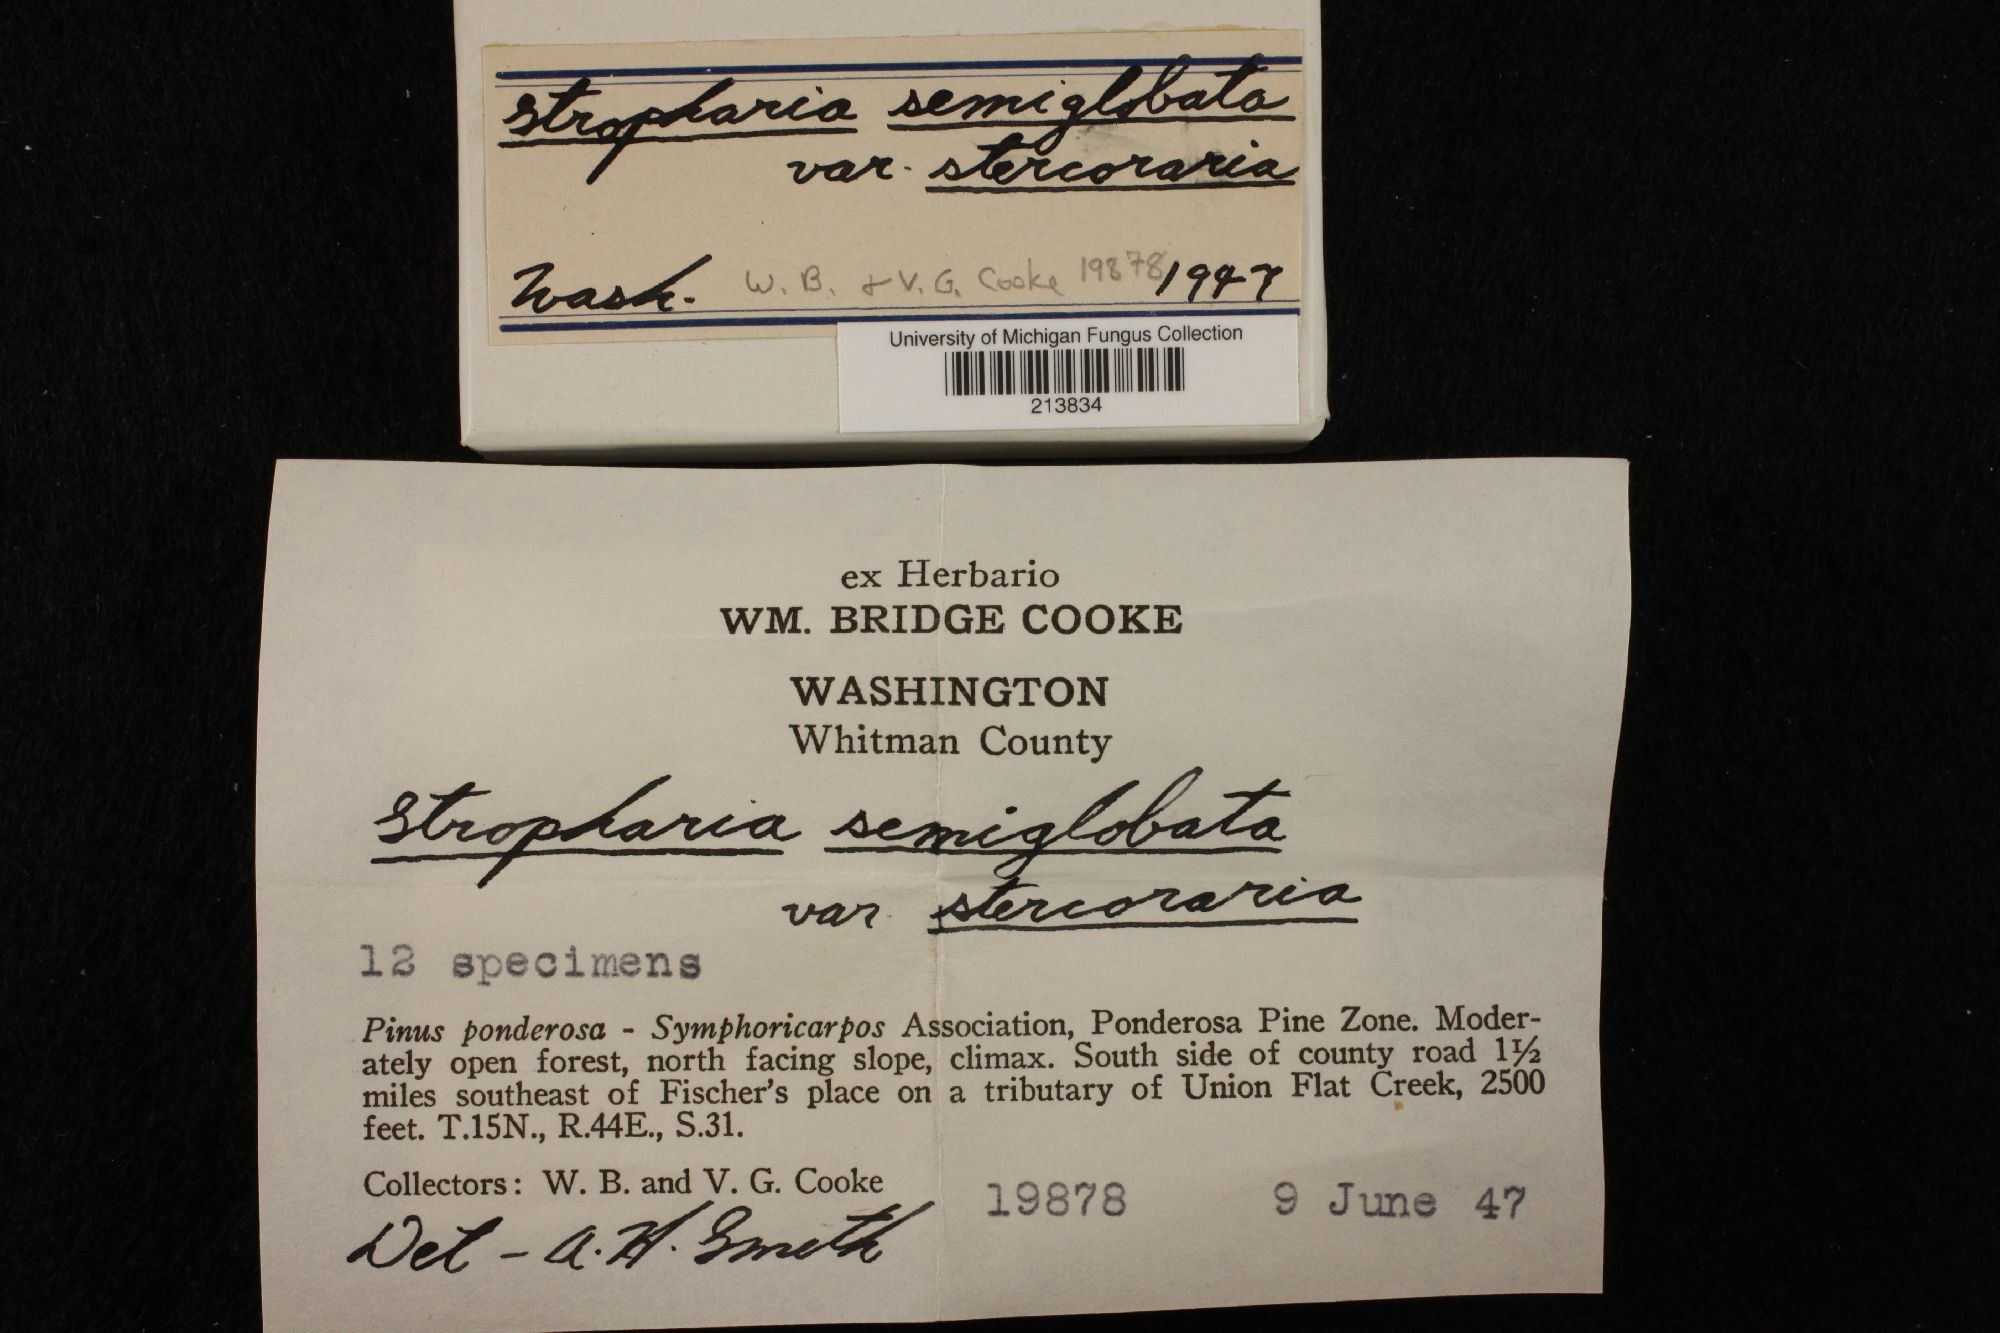 Stropharia semiglobata
var. stercoraria
Wash. W. B. & V. G. Cooke 19878 1947
University of Michigan Fungus Collection
213834
ex Herbario
WM. BRIDGE COOKE
WASHINGTON
Whitman County
Stropharia semiglobata
var. stercoraria
12 specimens
Pinus ponderosa - Symphoricarpos Association, Ponderosa Pine Zone. Moder-
ately open forest, north facing slope, climax. South side of county road 1½
miles southeast of Fischer's place on a tributary of Union Flat Creek, 2500
feet. T.15N., R.44E., S.31.
Collectors: W. B. and V. G. Cooke
19878 9 June 47
Det - A. H. Smith